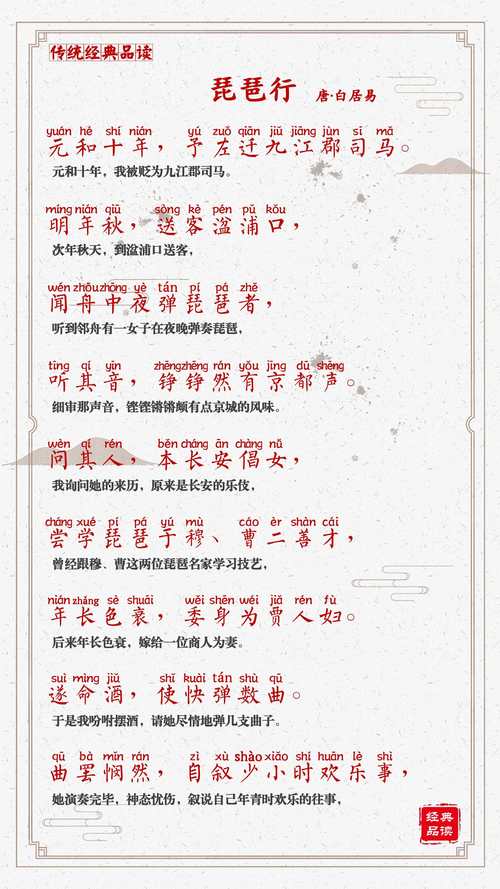 传统经典品读
琵琶行 唐·白居易
yuán hé shí nián yú zuǒ qiān jiǔ jiāng jùn sī mǎ
元和十年，予左迁九江郡司马。
元和十年，我被贬为九江郡司马。
míng nián qiū sòng kè pén pǔ kǒu
明年秋，送客湓浦口，
次年秋天，到湓浦口送客，
wén zhōu zhōng yè tán pí pá zhě
闻舟中夜弹琵琶者，
听到邻舟有一女子在夜晚弹奏琵琶，
tīng qí yīn zhēng zhēng rán yǒu jīng dū shēng
听其音，铮铮然有京都声。
细审那声音，铿铿锵锵颇有点京城的风味。
wèn qí rén běn cháng ān chàng nǚ
问其人，本长安倡女，
我询问她的来历，原来是长安的乐伎，
cháng xué pí pá yú mù cáo èr shàn cái
尝学琵琶于穆、曹二善才，
曾经跟穆、曹这两位琵琶名家学习技艺，
nián zhǎng sè shuāi wěi shēn wéi jiǎ rén fù
年长色衰，委身为贾人妇。
后来年长色衰，嫁给一位商人为妻。
suì mìng jiǔ shǐ kuài tán shù qǔ
遂命酒，使快弹数曲。
于是我吩咐摆酒，请她尽情地弹几支曲子。
qǔ bà mǐn rán zì xù shào xiǎo shí huān lè shì
曲罢悯然，自叙少小时欢乐事，
她演奏完毕，神态忧伤，叙说自己年青时欢乐的往事，
经典
品读